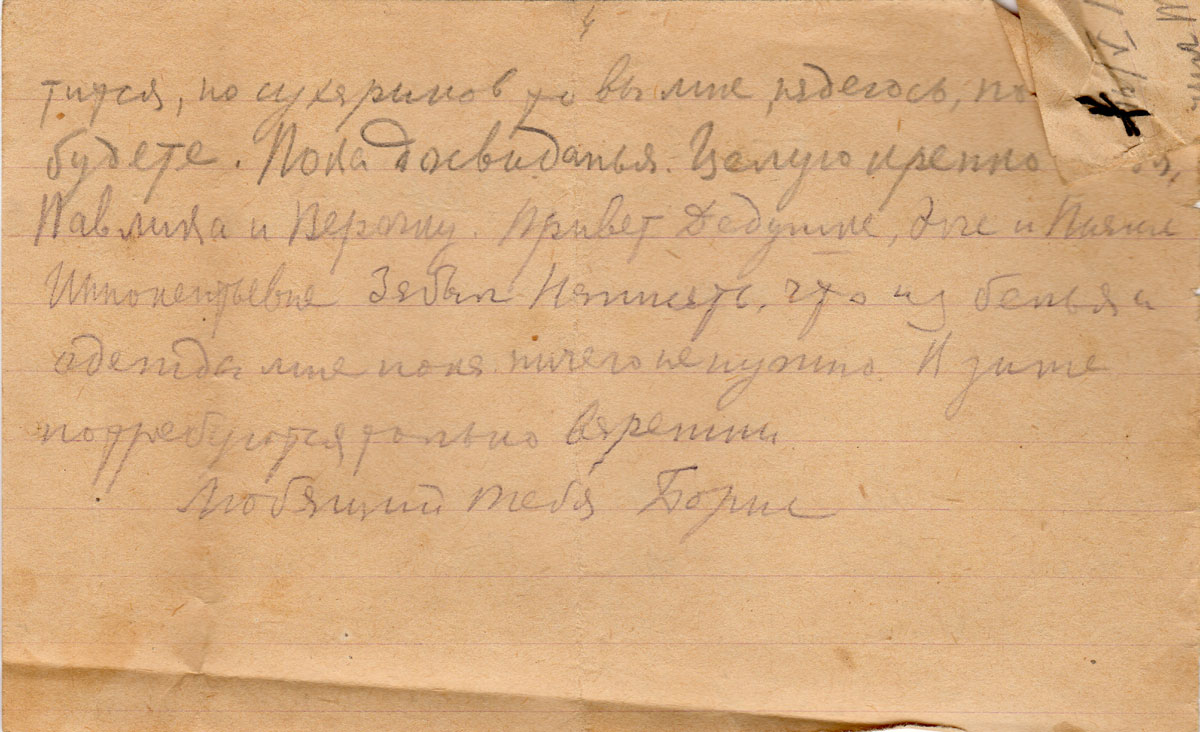 4
тится, но сухариков то вы мне, надеюсь, по
будете. Пока досвиданья. Целую крепко
Павлика и Верочку. Привет Дедушке, и
Иннокентьевне Забыл Написать, что из белья и
одежды мне пока ничего не нужно. К зиме
потребуются только варежки
Любящий тебя Борис